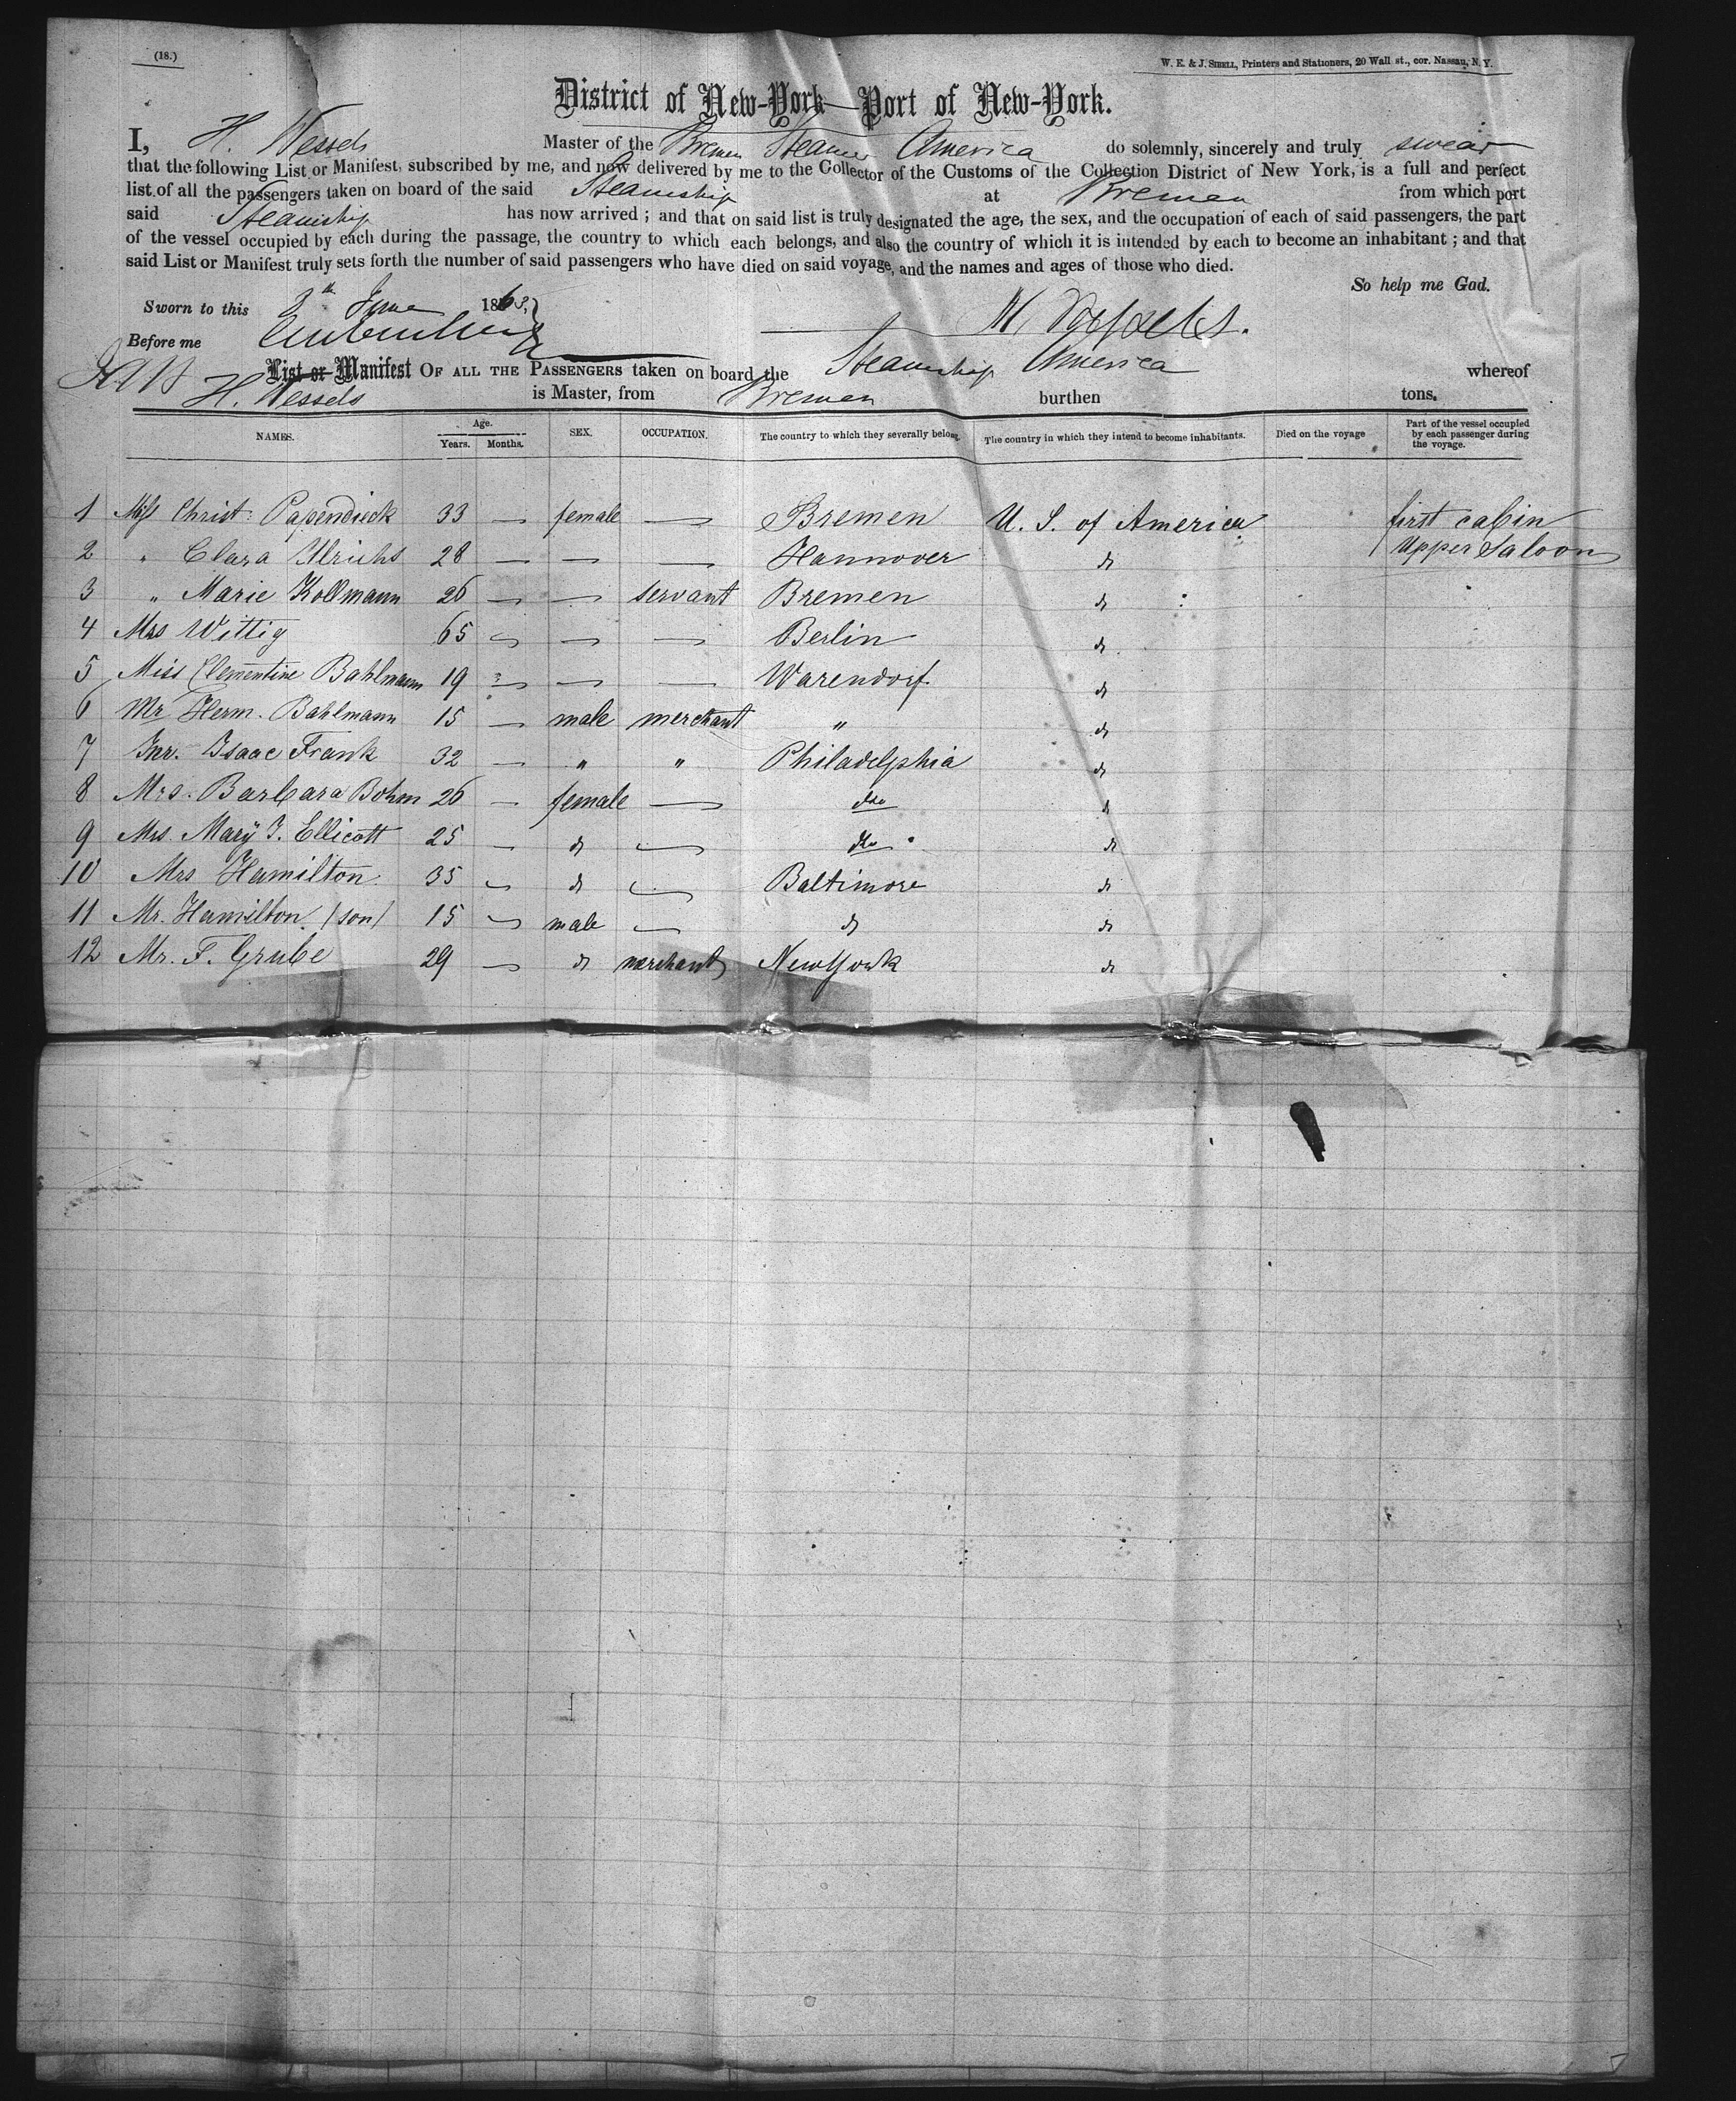 (18.)
W. E. & J. SIBELL, Printers and Stationers, 20 Wall st., cor. Nassau, N. Y.
District of New-York—Port of New-York.
I, H. Wessels Master of the Bremen Steamer America do solemnly, sincerely and truly swear
that the following List or Manifest, subscribed by me, and now delivered by me to the Collector of the Customs of the Collection District of New York, is a full and perfect
list of all the passengers taken on board of the said Steamship at Bremen from which port
said Steamship has now arrived ; and that on said list is truly designated the age, the sex, and the occupation of each of said passengers, the part
of the vessel occupied by each during the passage, the country to which each belongs, and also the country of which it is intended by each to become an inhabitant ; and that
said List or Manifest truly sets forth the number of said passengers who have died on said voyage, and the names and ages of those who died.
So help me God.
Sworn to this th June 1863
H. Wessels.
Before me
List or Manifest OF ALL THE PASSENGERS taken on board the Steamship America whereof
H. Wessels is Master, from Bremen burthen tons.
NAMES. Age. Years. Months. SEX. OCCUPATION. The country to which they severally belong. The country in which they intend to become inhabitants. Died on the voyage Part of the vessel occupied by each passenger during the voyage.
1 Miss Christ: Papendieck 33 — female — Bremen U. S. of America first cabin
2 " Clara Ulrichs 28 — — — Hannover do Upper Saloon
3 " Marie Kollmann 26 — — servant Bremen do
4 Mrs Wittig 65 — — — Berlin do
5 Miss Clementine Bahlmann 19 — — — Warendorf. do
6 Mr Herm. Bahlmann 15 — male merchant " do
7 Mr. Isaac Frank 32 — " " Philadelphia do
8 Mrs. Barbara Bohm 26 — female — do do
9 Mrs. Mary J. Ellicott 25 — do — do do
10 Mrs Hamilton 35 — do — Baltimore do
11 Mr. Hamilton (son) 15 — male — do do
12 Mr. F. Grube 29 — do merchant New York do